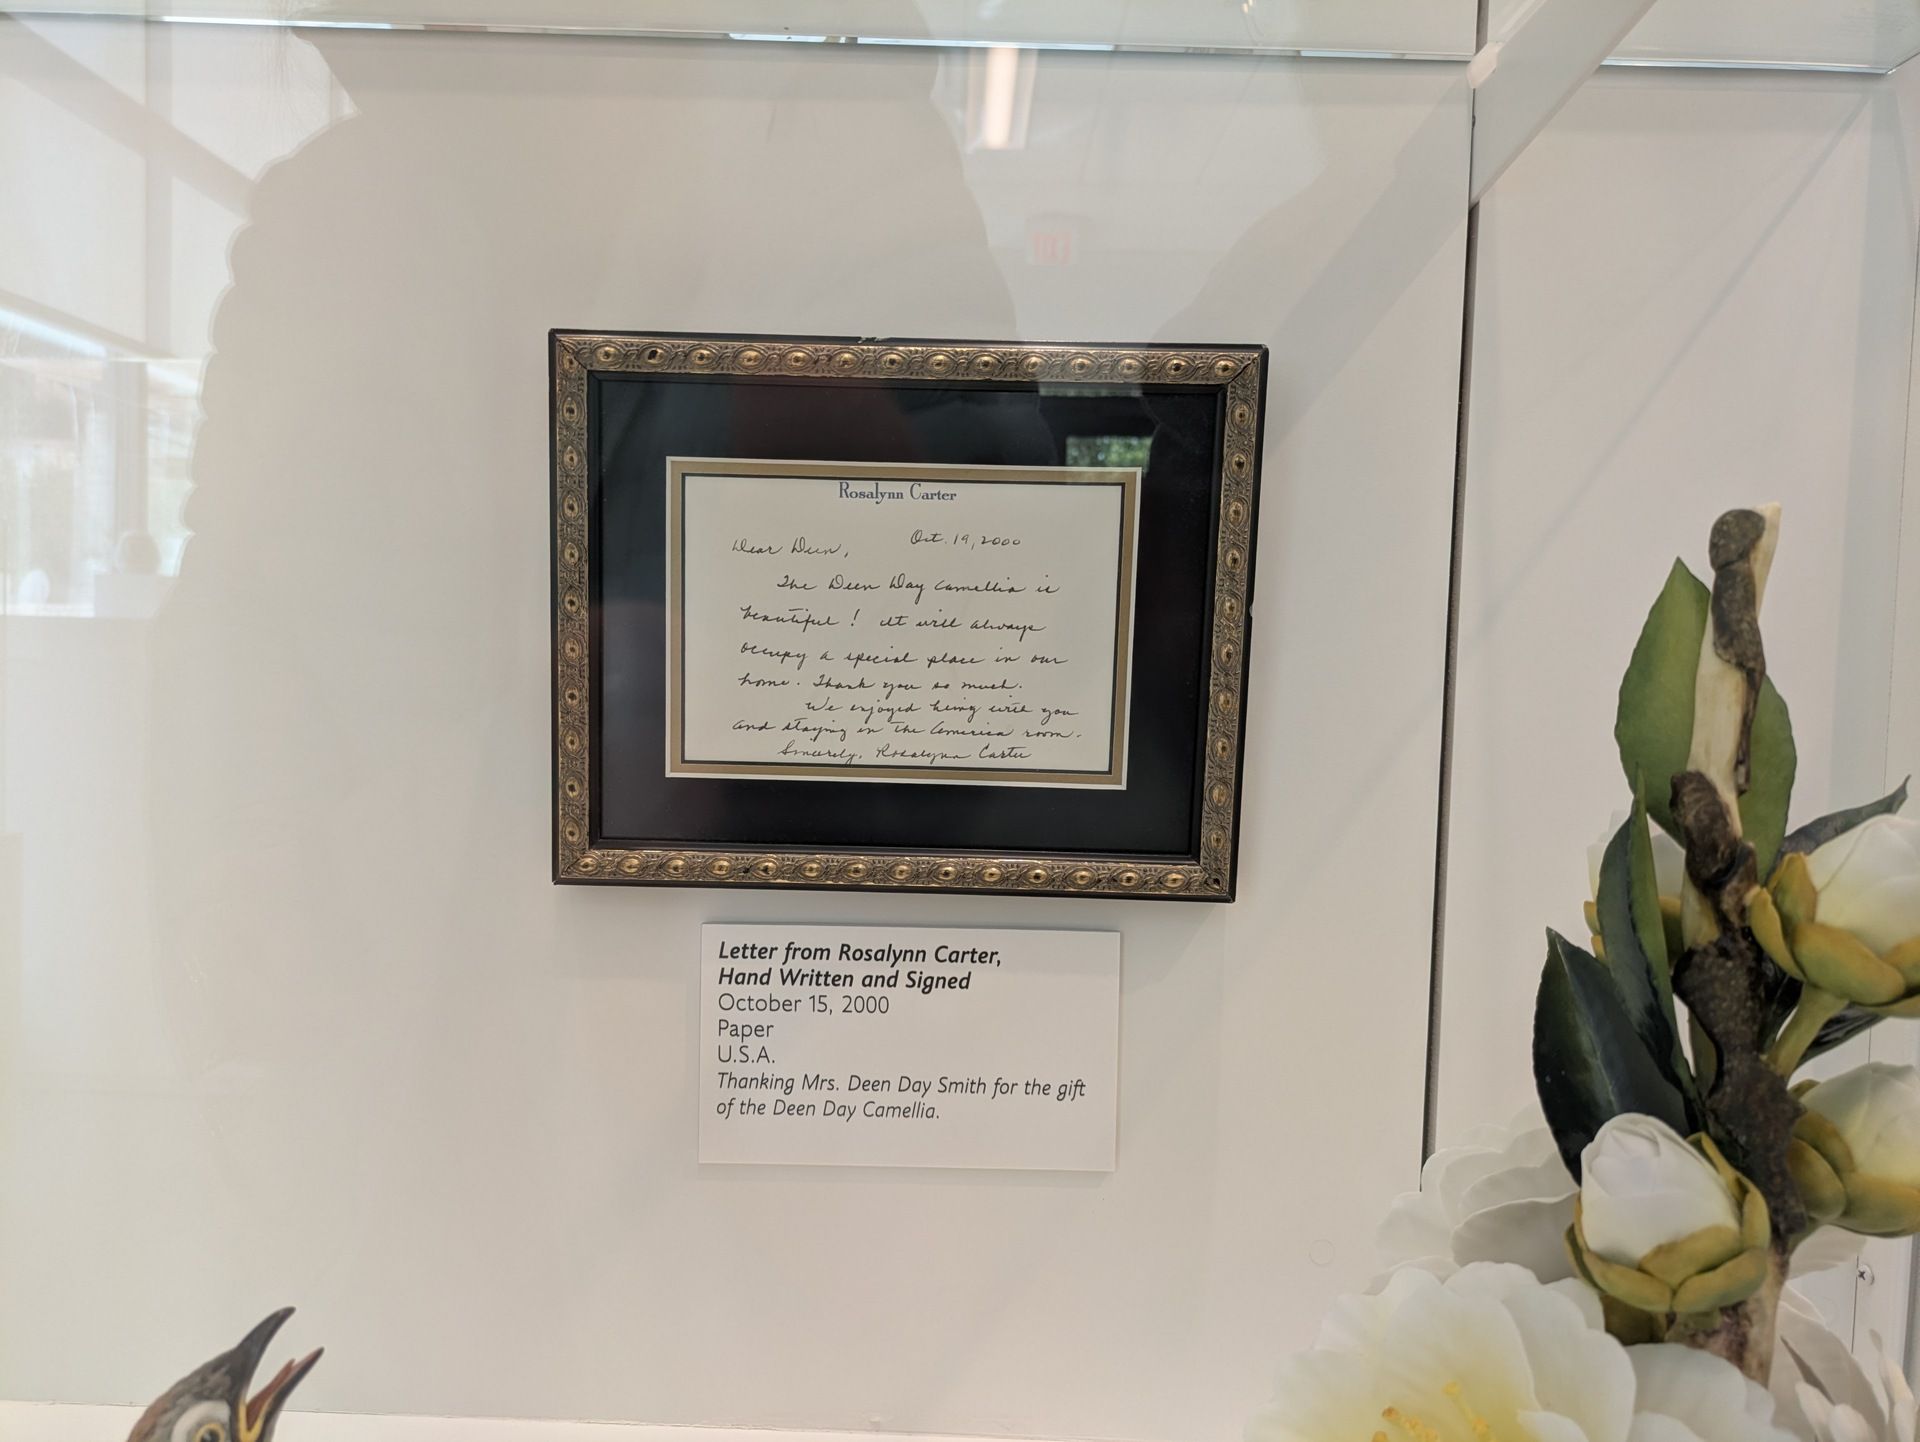 Rosalynn Carter
Oct. 19, 2000
Dear Deen,
The Deen Day Camellia is
beautiful! It will always
occupy a special place in our
home. Thank you so much.
We enjoyed being with you
and staying in the America room.
Sincerely, Rosalynn Carter
Letter from Rosalynn Carter,
Hand Written and Signed
October 15, 2000
Paper
U.S.A.
Thanking Mrs. Deen Day Smith for the gift
of the Deen Day Camellia.